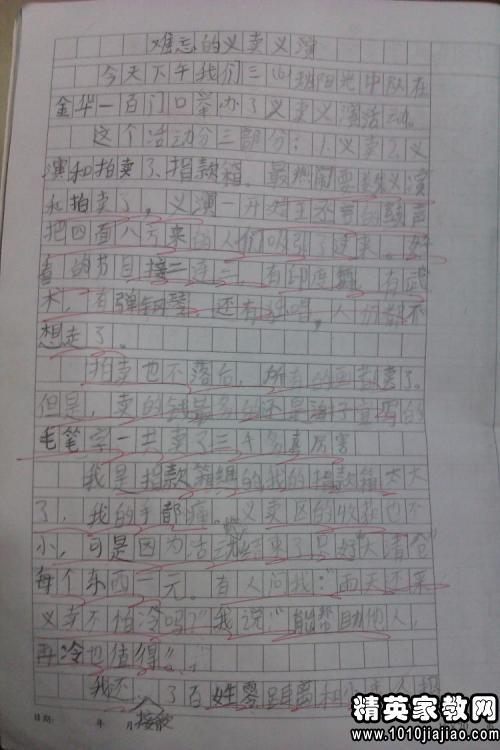 难忘的义卖义演
今天下午我们三(4)班阳光中队在
金华一百门口举办了义卖义演活动。
这个活动分三部分:1.义卖2.义
演和拍卖3.捐款箱。最热闹要数义演
和拍卖了,义演一开始王不声的鼓声
把四面八方来的人们吸引了过来。好
看的节目接二连三,有印度舞,有武
术,有弹钢琴,还有独唱,人们都不
想走了。
拍卖也不落后,所有的画都卖了。
但是,卖的钱最多的不是写的
毛笔字一共卖了三千多真厉害
我是捐款箱组的我的捐款箱太大
了,我的手都痛。义卖区的收获也不
小,可是因为活动快结束了只好"大清仓"
每个东西一元。有人问我:"雨天还来
义卖不怕冷吗?"我说:"能帮助他人,
再冷也值得"。
我还 了百姓零距离和
日期: 年 月 接受
精英家教网
www.1010jiajiao.com